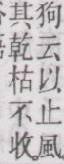 狗云以止風
其乾枯不收